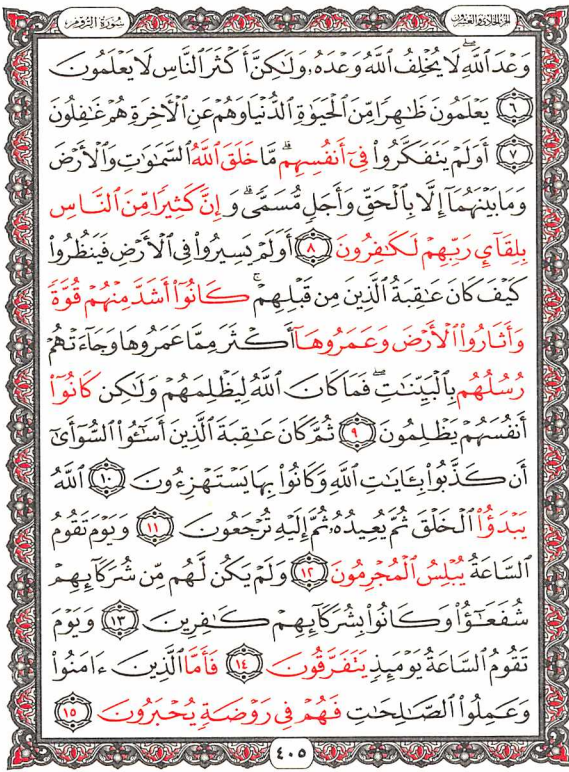 الجزء الحادي والعشرون سورة الروم
وَعْدَ ٱللَّهِ ۖ لَا يُخْلِفُ ٱللَّهُ وَعْدَهُۥ وَلَٰكِنَّ أَكْثَرَ ٱلنَّاسِ لَا يَعْلَمُونَ
٦ يَعْلَمُونَ ظَٰهِرًا مِّنَ ٱلْحَيَوٰةِ ٱلدُّنْيَا وَهُمْ عَنِ ٱلْأَخِرَةِ هُمْ غَٰفِلُونَ
٧ أَوَلَمْ يَتَفَكَّرُوا۟ فِىٓ أَنفُسِهِم ۗ مَّا خَلَقَ ٱللَّهُ ٱلسَّمَٰوَٰتِ وَٱلْأَرْضَ
وَمَا بَيْنَهُمَآ إِلَّا بِٱلْحَقِّ وَأَجَلٍ مُّسَمًّى ۗ وَإِنَّ كَثِيرًا مِّنَ ٱلنَّاسِ
بِلِقَآئِ رَبِّهِمْ لَكَٰفِرُونَ ٨ أَوَلَمْ يَسِيرُوا۟ فِى ٱلْأَرْضِ فَيَنظُرُوا۟
كَيْفَ كَانَ عَٰقِبَةُ ٱلَّذِينَ مِن قَبْلِهِمْ ۚ كَانُوٓا۟ أَشَدَّ مِنْهُمْ قُوَّةً
وَأَثَارُوا۟ ٱلْأَرْضَ وَعَمَرُوهَآ أَكْثَرَ مِمَّا عَمَرُوهَا وَجَآءَتْهُمْ
رُسُلُهُم بِٱلْبَيِّنَٰتِ ۖ فَمَا كَانَ ٱللَّهُ لِيَظْلِمَهُمْ وَلَٰكِن كَانُوٓا۟
أَنفُسَهُمْ يَظْلِمُونَ ٩ ثُمَّ كَانَ عَٰقِبَةَ ٱلَّذِينَ أَسَٰٓـُٔوا۟ ٱلسُّوٓأَىٰٓ
أَن كَذَّبُوا۟ بِـَٔايَٰتِ ٱللَّهِ وَكَانُوا۟ بِهَا يَسْتَهْزِءُونَ ١٠ ٱللَّهُ
يَبْدَؤُا۟ ٱلْخَلْقَ ثُمَّ يُعِيدُهُۥ ثُمَّ إِلَيْهِ تُرْجَعُونَ ١١ وَيَوْمَ تَقُومُ
ٱلسَّاعَةُ يُبْلِسُ ٱلْمُجْرِمُونَ ١٢ وَلَمْ يَكُن لَّهُم مِّن شُرَكَآئِهِمْ
شُفَعَٰٓؤُا۟ وَكَانُوا۟ بِشُرَكَآئِهِمْ كَٰفِرِينَ ١٣ وَيَوْمَ
تَقُومُ ٱلسَّاعَةُ يَوْمَئِذٍ يَتَفَرَّقُونَ ١٤ فَأَمَّا ٱلَّذِينَ ءَامَنُوا۟
وَعَمِلُوا۟ ٱلصَّٰلِحَٰتِ فَهُمْ فِى رَوْضَةٍ يُحْبَرُونَ ١٥
٤٠٥